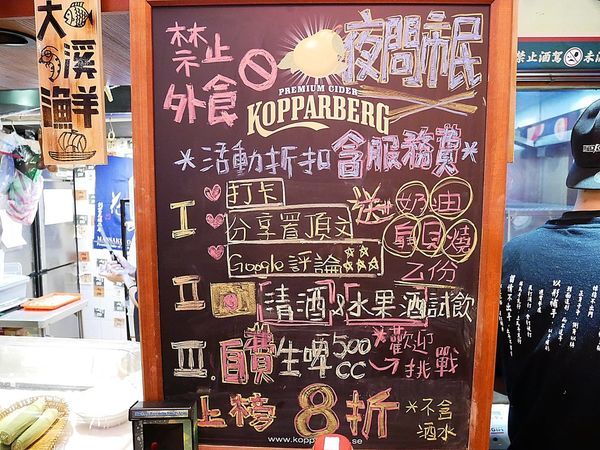 大溪海鮮
禁止
外食
夜間市民
PREMIUM CIDER
KOPPARBERG
*活動折扣含服務費*
I
打卡
分享置頂文
Google評論
送
奶油
扇貝燒
乙份
II
清酒&水果酒試飲
III.自費生啤500cc
*歡迎
挑戰
上榜8折
*不含
酒水
禁止酒駕